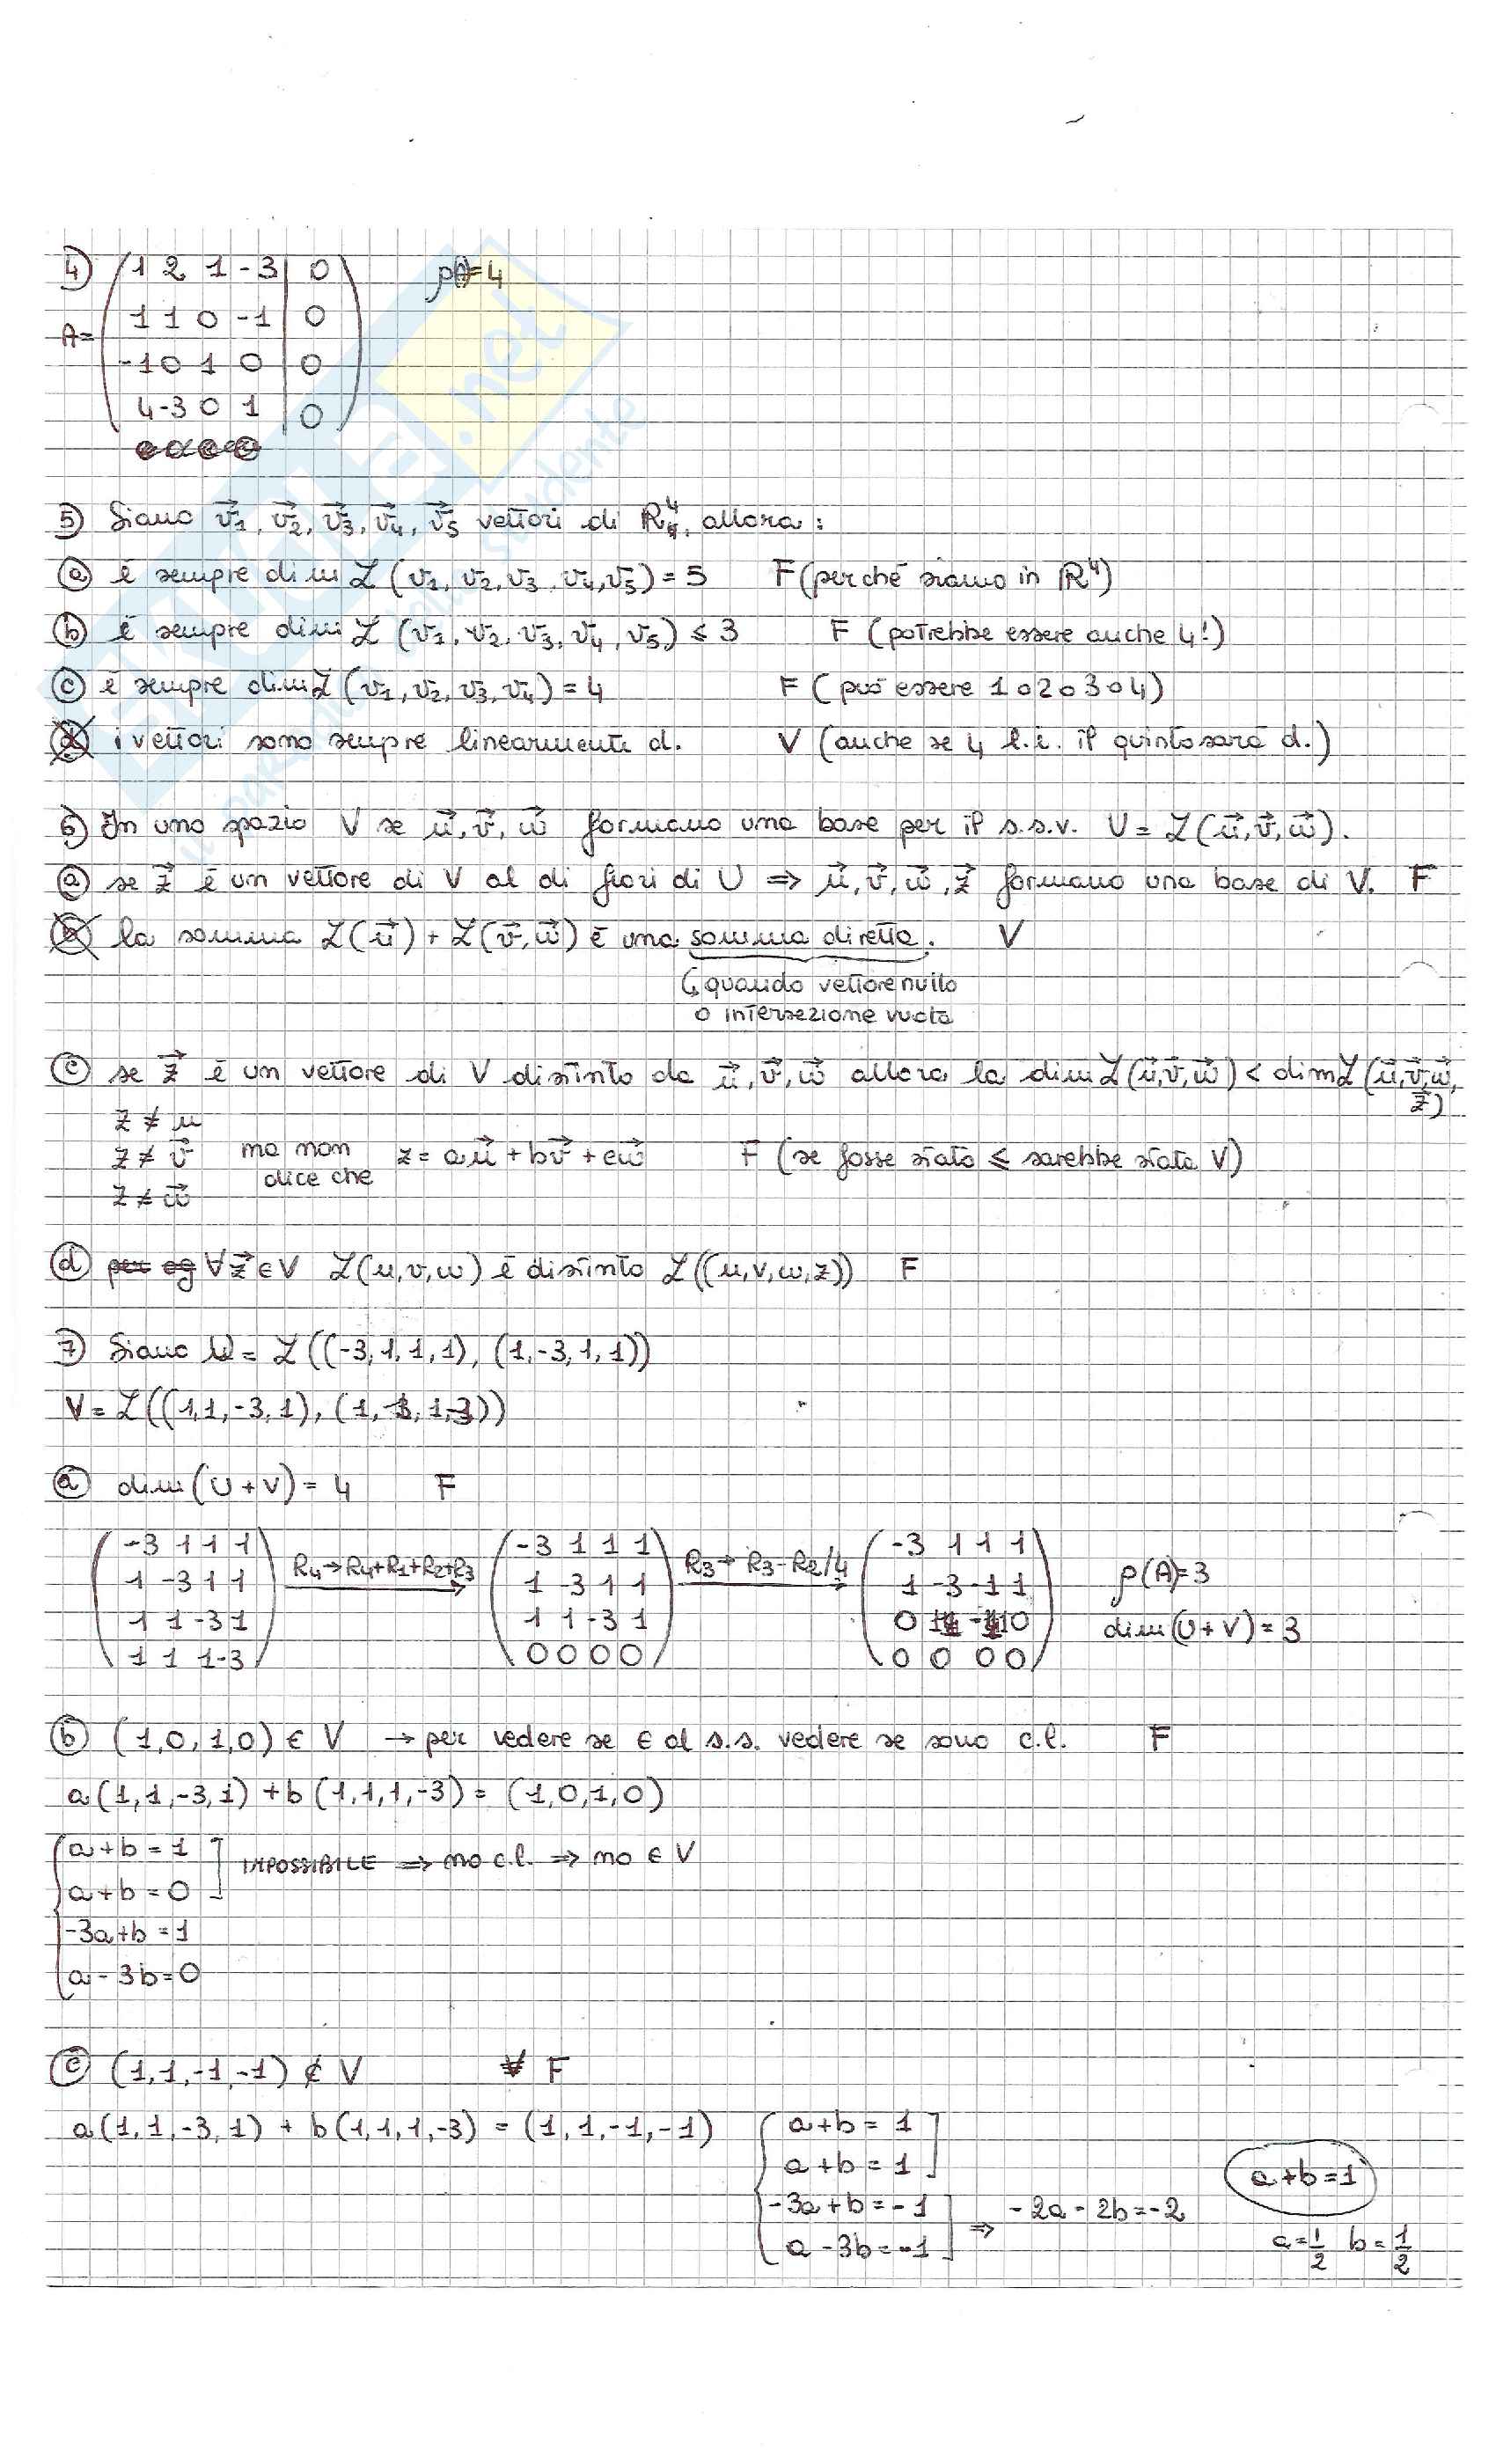 4) ( 1 2 1 -3 | 0 ) ρ(A)=4
A= 1 1 0 -1 | 0
-1 0 1 0 | 0
4 -3 0 1 | 0
5) Siano v⃗1, v⃗2, v⃗3, v⃗4, v⃗5 vettori di R⁴, allora:
ⓐ è sempre dim ℒ(v1, v2, v3, v4, v5) = 5 F (perché siamo in R⁴)
ⓑ è sempre dim ℒ (v1, v2, v3, v4, v5) ≤ 3 F (potrebbe essere anche 4!)
ⓒ è sempre dim ℒ (v1, v2, v3, v4) = 4 F (può essere 1 o 2 o 3 o 4)
ⓓ i vettori sono sempre linearmente d. V (anche se 4 l.i. il quinto sarà d.)
6) In uno spazio V se u⃗, v⃗, w⃗ formano una base per il s.s.v. U = ℒ(u⃗, v⃗, w⃗).
ⓐ se z⃗ è un vettore di V al di fuori di U ⇒ u⃗, v⃗, w⃗, z⃗ formano una base di V. F
ⓑ la somma ℒ(u⃗) + ℒ(v⃗, w⃗) è una somma diretta. V
↳ quando vettore nullo
o intersezione vuota
ⓒ se z⃗ è un vettore di V distinto da u⃗, v⃗, w⃗ allora la dim ℒ(u⃗,v⃗,w⃗) < dim ℒ(u⃗,v⃗,w⃗,
z⃗)
z ≠ u
z ≠ v⃗ ma non z = au⃗ + bv⃗ + cw⃗ F (se fosse stato ≤ sarebbe stata V)
dice che
z ≠ w⃗
ⓓ per og ∀ z⃗ ∈ V ℒ(u,v,w) è distinto ℒ((u,v,w,z)) F
7) Siano U = ℒ((-3,1,1,1), (1,-3,1,1))
V = ℒ((1,1,-3,1), (1,1,1,-3))
ⓐ dim (U+V) = 4 F
( -3 1 1 1 ) R4→R4+R1+R2+R3 ( -3 1 1 1 ) R3→R3-R2/4 ( -3 1 1 1 )
1 -3 1 1 1 -3 1 1 1 -3 1 1 ρ(A)=3
1 1 -3 1 1 1 -3 1 0 1 -1 0 dim (U+V) = 3
1 1 1 -3 0 0 0 0 0 0 0 0
ⓑ (1,0,1,0) ∈ V → per vedere se ∈ al s.s. vedere se sono c.l. F
a(1,1,-3,1) + b(1,1,1,-3) = (1,0,1,0)
a+b = 1
IMPOSSIBILE ⇒ no c.l. ⇒ no ∈ V
a+b = 0
-3a+b = 1
a-3b = 0
ⓒ (1,1,-1,-1) ∉ V V F
a(1,1,-3,1) + b(1,1,1,-3) = (1,1,-1,-1) a+b = 1
a+b = 1 a+b=1
-3a+b = -1 ⇒ -2a-2b=-2
a-3b = -1 a=1/2 b=1/2
.net